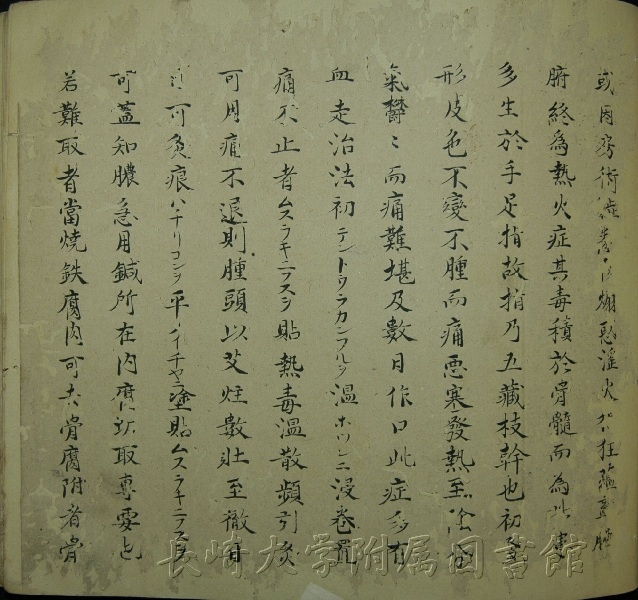 或因
腑終為熱火症其毒積於骨髓而為此患
多生於手足指故指乃五藏枝幹也初多
形皮色不變不腫而痛悪寒發熱至
氣欝〻而痛難堪及數日作口此症多有
血走治法初テントウラカンフルヲ温ホツシニ浸卷置
痛不止者ムスラキニフスヲ貼熱毒温散頻引炎
可用痛不退則腫頭以艾炷數壯至徹
可灸痕ハチリコンヲ平ハイチヤラ塗貼ムスラキニフス
可蓋知膿急用鍼所在内腐 取専要也
若難取者當焼鉄腐肉可去骨腐附者骨
長崎大学附属図書館